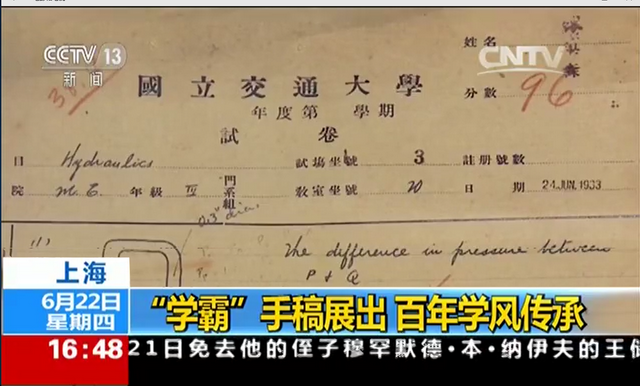 CCTV 13
新闻
CNTV
姓名
國立交通大學
分數 96
年度第 學期
試卷
目 Hydraulics 試場坐號 3 註册號數
院 M.E. 年級 IV 門系組 教室坐號 20 日期 24 JUN. 1933
0.3" dia.
(1) The difference in pressure between
P & Q
上海
6月22日
星期四
“学霸”手稿展出 百年学风传承
16:48 21日免去他的侄子穆罕默德·本·纳伊夫的王储